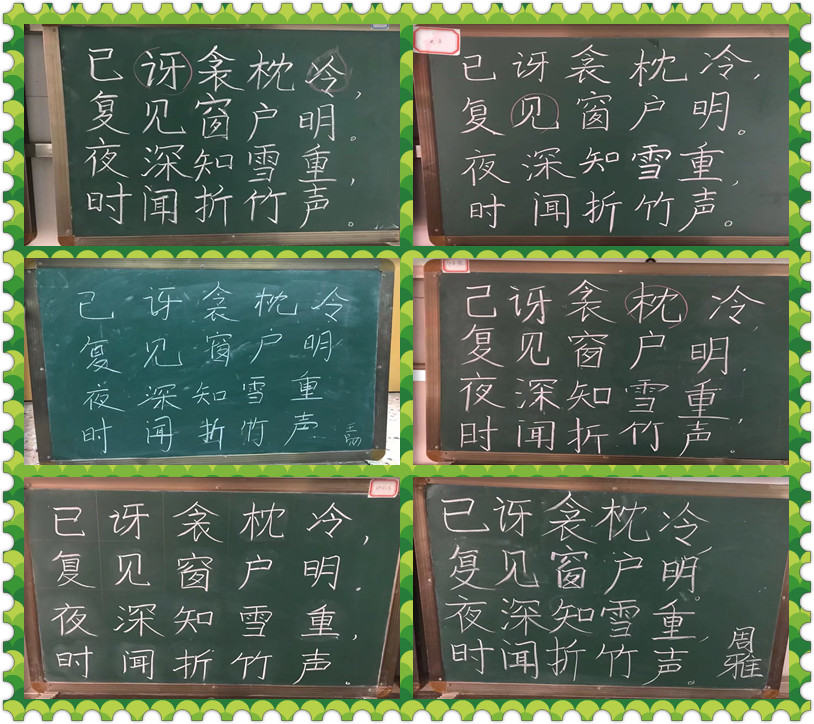 已讶衾枕冷，
复见窗户明。
夜深知雪重，
时闻折竹声。
已讶衾枕冷，
复见窗户明。
夜深知雪重，
时闻折竹声。
已讶衾枕冷
复见窗户明
夜深知雪重
时闻折竹声
已讶衾枕冷，
复见窗户明.
夜深知雪重，
时闻折竹声。
已讶衾枕冷，
复见窗户明.
夜深知雪重，
时闻折竹声.
已讶衾枕冷，
复见窗户明。
夜深知雪重，
时闻折竹声。
周雅